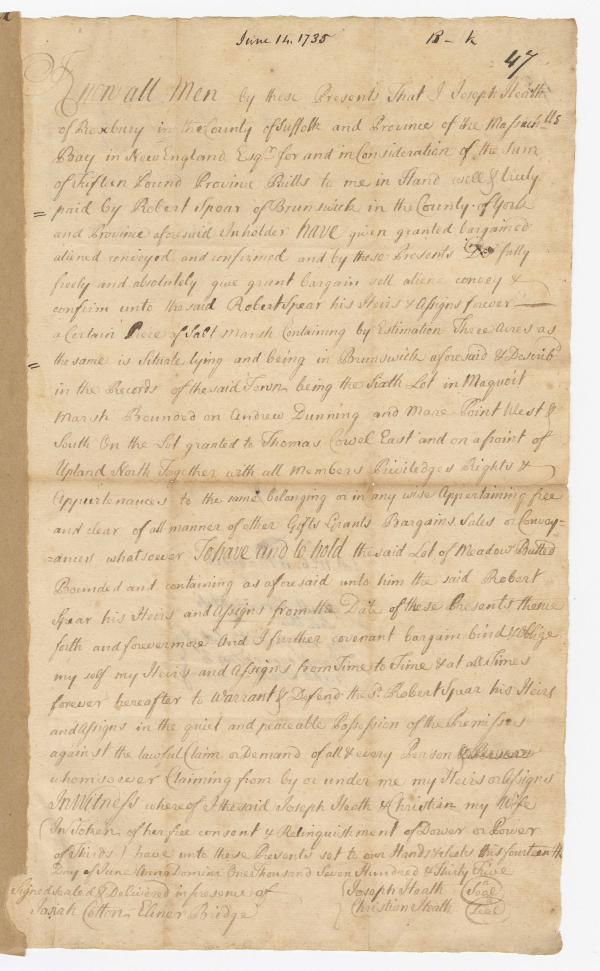 June 14. 1735 B - k
47
Know all Men by these Presents That I Joseph Heath
of Roxbury in the County of Suffolk and Province of the Massachtts
Bay in New England Esqr. for and in Consideration of the sum
of fifteen Pound Province Bills to me in Hand well & truly
= paid by Robert Spear of Brunswick in the County of York
and Province aforesaid Inholder have given granted bargained
aliened conveyed and confirmed and by these Presents Do fully
freely and absolutely give grant bargain sell aliene convey &
confirm unto the said Robert Spear his Heirs & Assigns forever
a Certain Piece of Salt Marsh Containing by Estimation Three Acres as
= the same is Situate lying and being in Brunswick aforesaid & Describd
in the Records of the said Town being the Sixth Lot in Maquoit
Marsh Bounded on Andrew Dunning and Mare Point West &
South On the Lot granted to Thomas Cowel East and on a point of
Upland North Together with all Members Priviledges Rights &
Appurtenances to the same belonging or in any wise Appertaining free
and clear of all manner of other Gifts Grants Bargains Sales or Convey=
=ances whatsoever To have and to hold the said Lot of Meadow Butted
Bounded and containing as aforesaid unto him the said Robert
Spear his Heirs and Assigns from the Date of these Presents thence
forth and forevermore And I further covenant bargain bind & oblige
my self my Heirs and Assigns from Time to Time & at all Times
forever hereafter to Warrant & Defend the Sd. Robert Spear his Heirs
and Assigns in the quiet and peaceable Possession of the Premisses
against the lawful Claim or Demand of all & every Person
whomsoever Claiming from by or under me my Heirs or Assigns
In Witness whereof I the said Joseph Heath & Christian my Wife
In Token of her free consent & Relinquishment of Dower or Power
of Thirds have unto these Presents set to our Hands & Seals this fourteenth
Day of June Anno Domini One Thousand Seven Hundred & Thirty five
Signed Sealed & Delivered in presence of Joseph Heath Seal
Josiah Cotton Eliner Bridge Christian Heath Seal